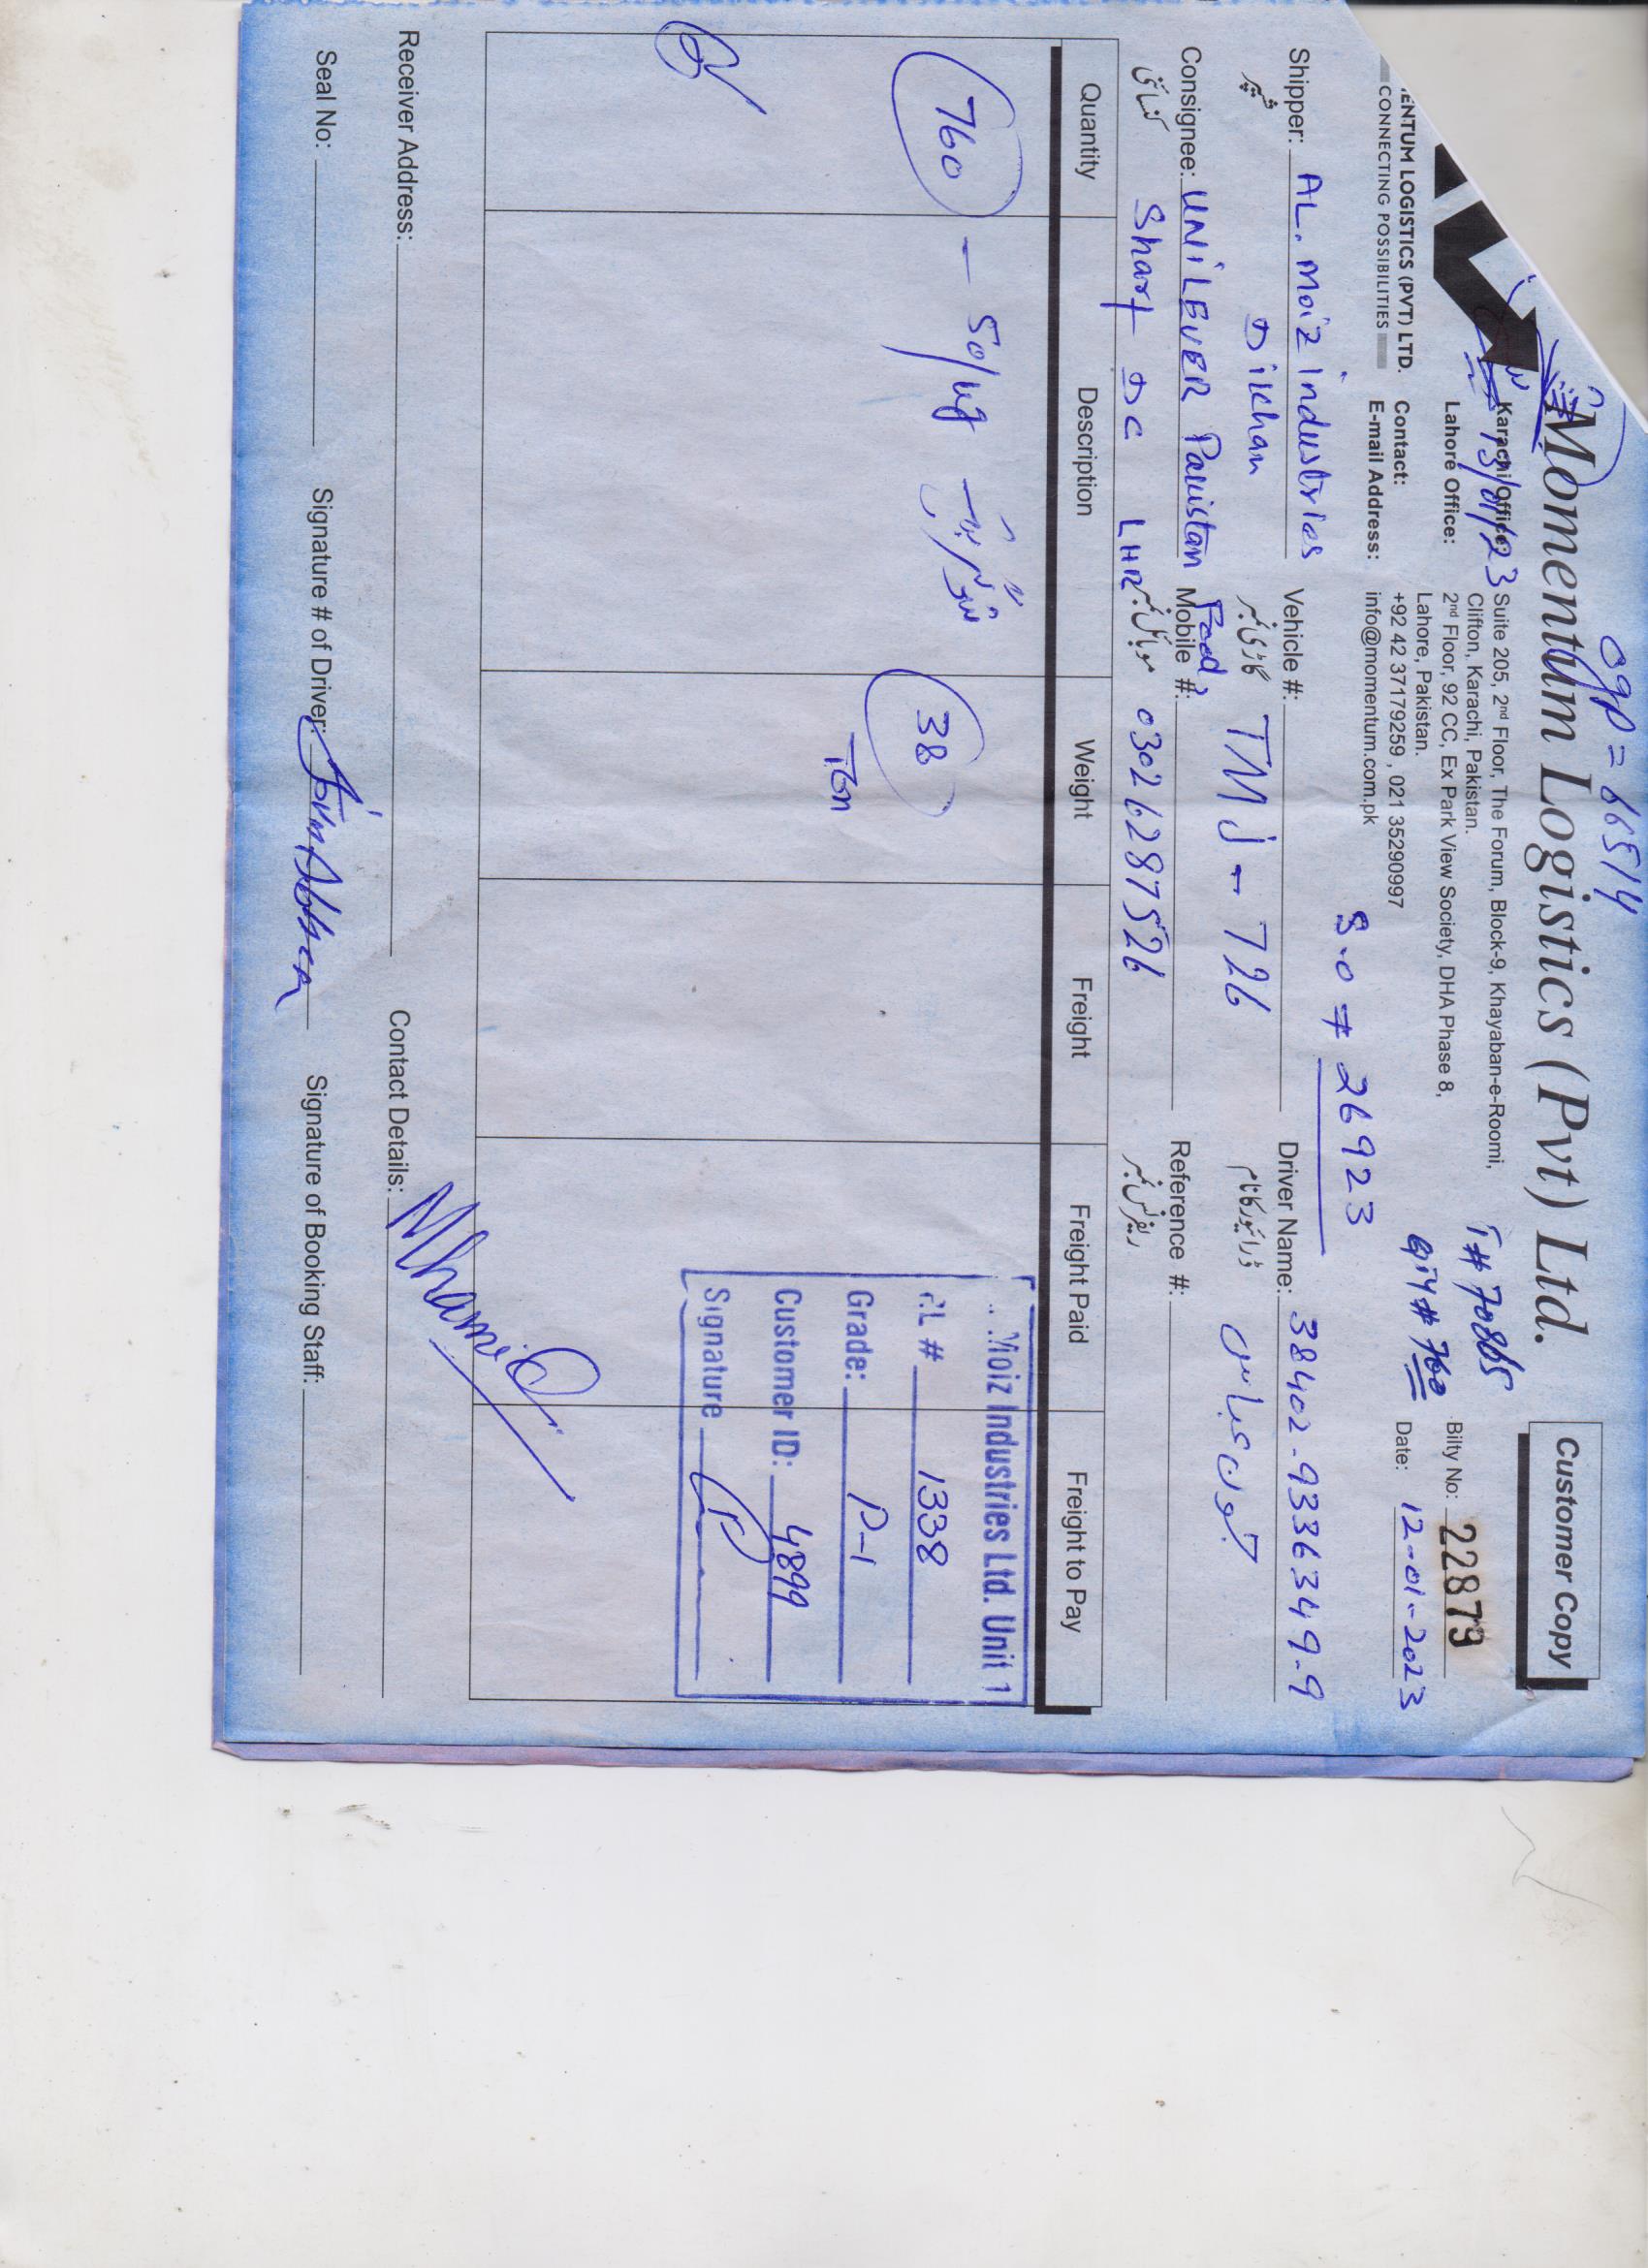 ogp = 66514
Momentum Logistics (Pvt) Ltd.
Customer Copy
ENTUM LOGISTICS (PVT) LTD.
CONNECTING POSSIBILITIES
13/01/23
Karachi Office: Suite 205, 2nd Floor, The Forum, Block-9, Khayaban-e-Roomi,
Clifton, Karachi, Pakistan.
Lahore Office: 2nd Floor, 92 CC, Ex Park View Society, DHA Phase 8,
Lahore, Pakistan.
Contact: +92 42 37179259 , 021 35290997
E-mail Address: info@momentum.com.pk
T# 70865
Qty# 760
Bilty No: 22879
Date: 12-01-2023
S.O # 26923
Shipper: AL. Moiz Industries
شپر
Dikhan
Vehicle #:
گاڑی نمبر
TMJ - 726
Driver Name: 38402-9336349-9
ڈرائیور کا نام
Consignee: UNILEVER Pakistan Food,
کنسائی
Sharf DC LHR
Mobile #:
موبائل نمبر
03026287526
Reference #:
ریفرنس نمبر
Quantity Description Weight Freight Freight Paid Freight to Pay
760 — 50/kg
38
Ton
Moiz Industries Ltd. Unit 1
1338
Grade: P-1
Customer ID: 4899
Signature
Receiver Address: Contact Details:
Seal No: Signature # of Driver: Signature of Booking Staff: